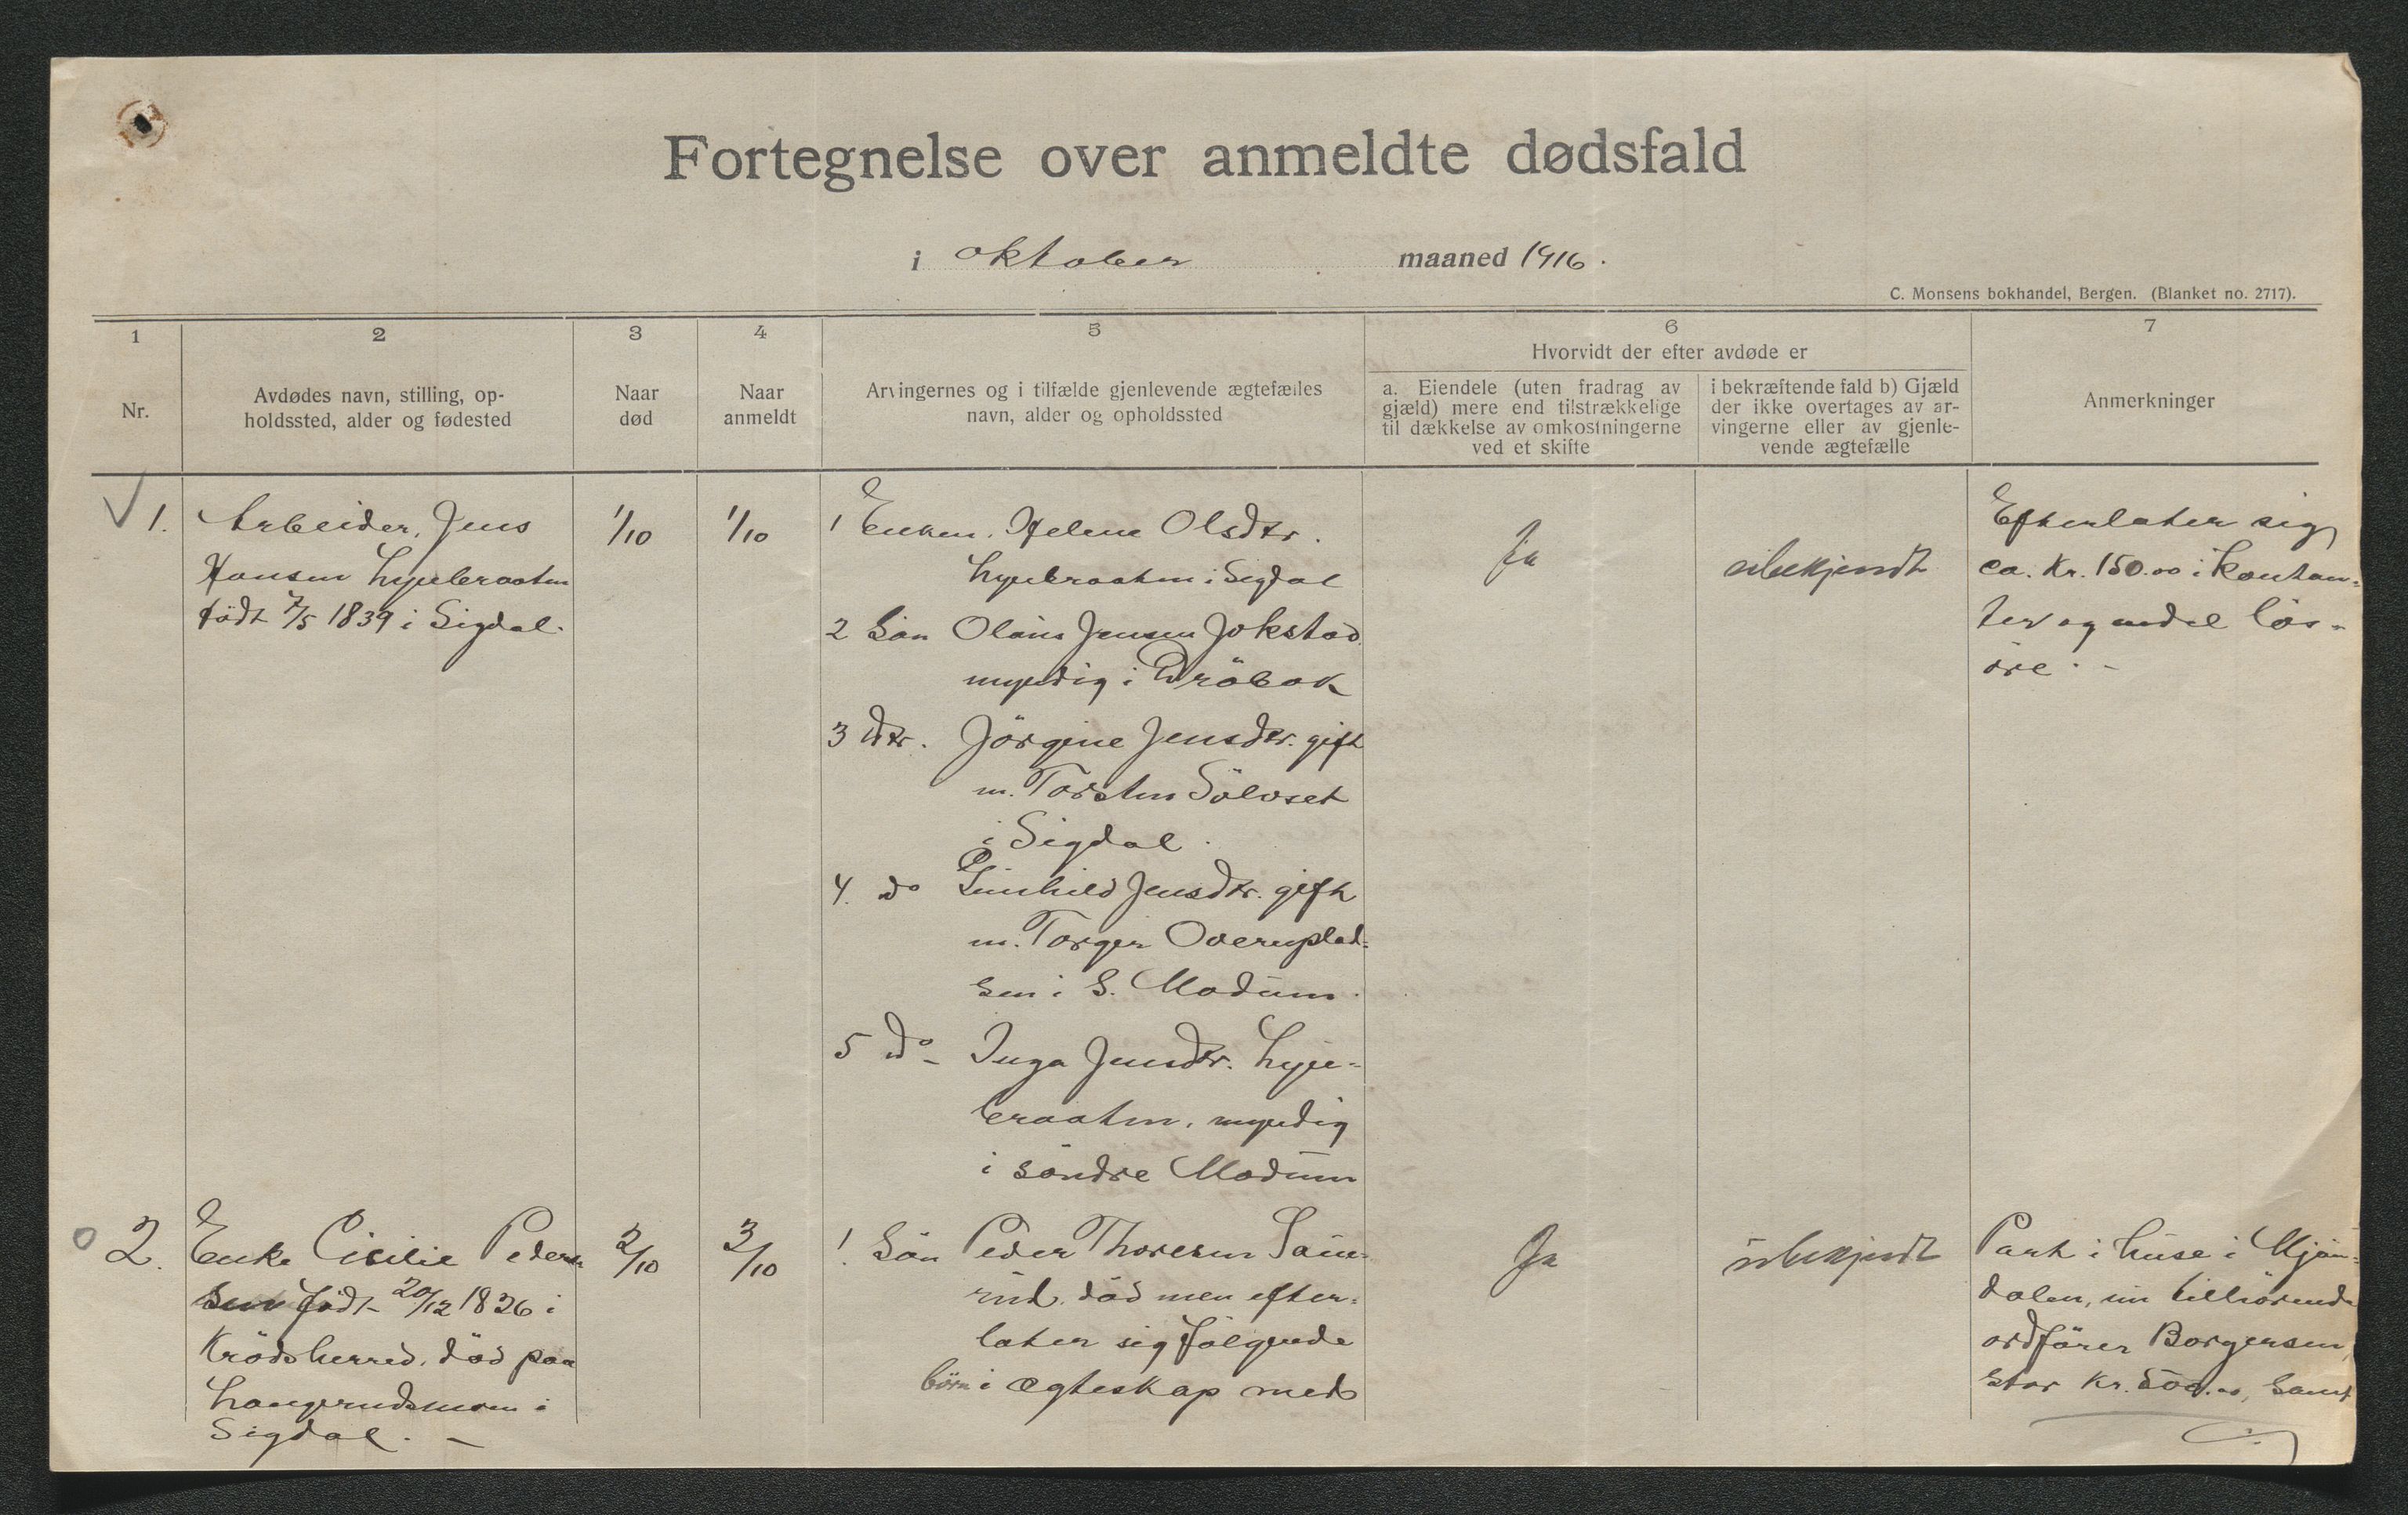 Fortegnelse over anmeldte dødsfald
i oktober maaned 1916.
C. Monsens bokhandel, Bergen. (Blanket no. 2717).
1
Nr.
2
Avdødes navn, stilling, op-
holdssted, alder og fødested
3
Naar
død
4
Naar
anmeldt
5
Arvingernes og i tilfælde gjenlevende ægtefælles
navn, alder og opholdssted
6
Hvorvidt der efter avdøde er
a. Eiendele (uten fradrag av
gjæld) mere end tilstrækkelige
til dækkelse av omkostningerne
ved et skifte
i bekræftende fald b) Gjæld
der ikke overtages av ar-
vingerne eller av gjenle-
vende ægtefælle
7
Anmerkninger
1.
Arbeider, Jens
Hansen Lynebraaten
født 7/5 1839 i Sigdal.
1/10
1/10
1 Enken. Helene Olsdtr.
Lynebraaten i Sigdal
2 Sön Olaus Jensen Jokstad
myndig i Dröbak
3 Dtr. Jörgine Jensdtr. gift
m. Torsten Sölvset
i Sigdal.
4. do Gunhild Jensdtr. gift
m. Torger Overnplad-
sen i S. Modum.
5 do - Inga Jensdtr. Lyne-
braaten, myndig
i söndre Modum
Ja
ubekjendt
Efterlater sig
ca. Kr. 150.00 i kontan-
ter og endel lös-
öre. -
2.
Enke Cicilie Peders-
sen född 20/12 1826 i
Krödsherred, död paa
Haugerudsmoen i
Sigdal. -
2/10
3/10
1. Sön Peder Thoresen
rud. död men efter-
later sig fölgende
börn i ægteskap med
Ja
ubekjendt
Part i huse i Mjön-
dalen, nu tilhörende
ordförer Borgersen,
stor Kr. 500.00, samt